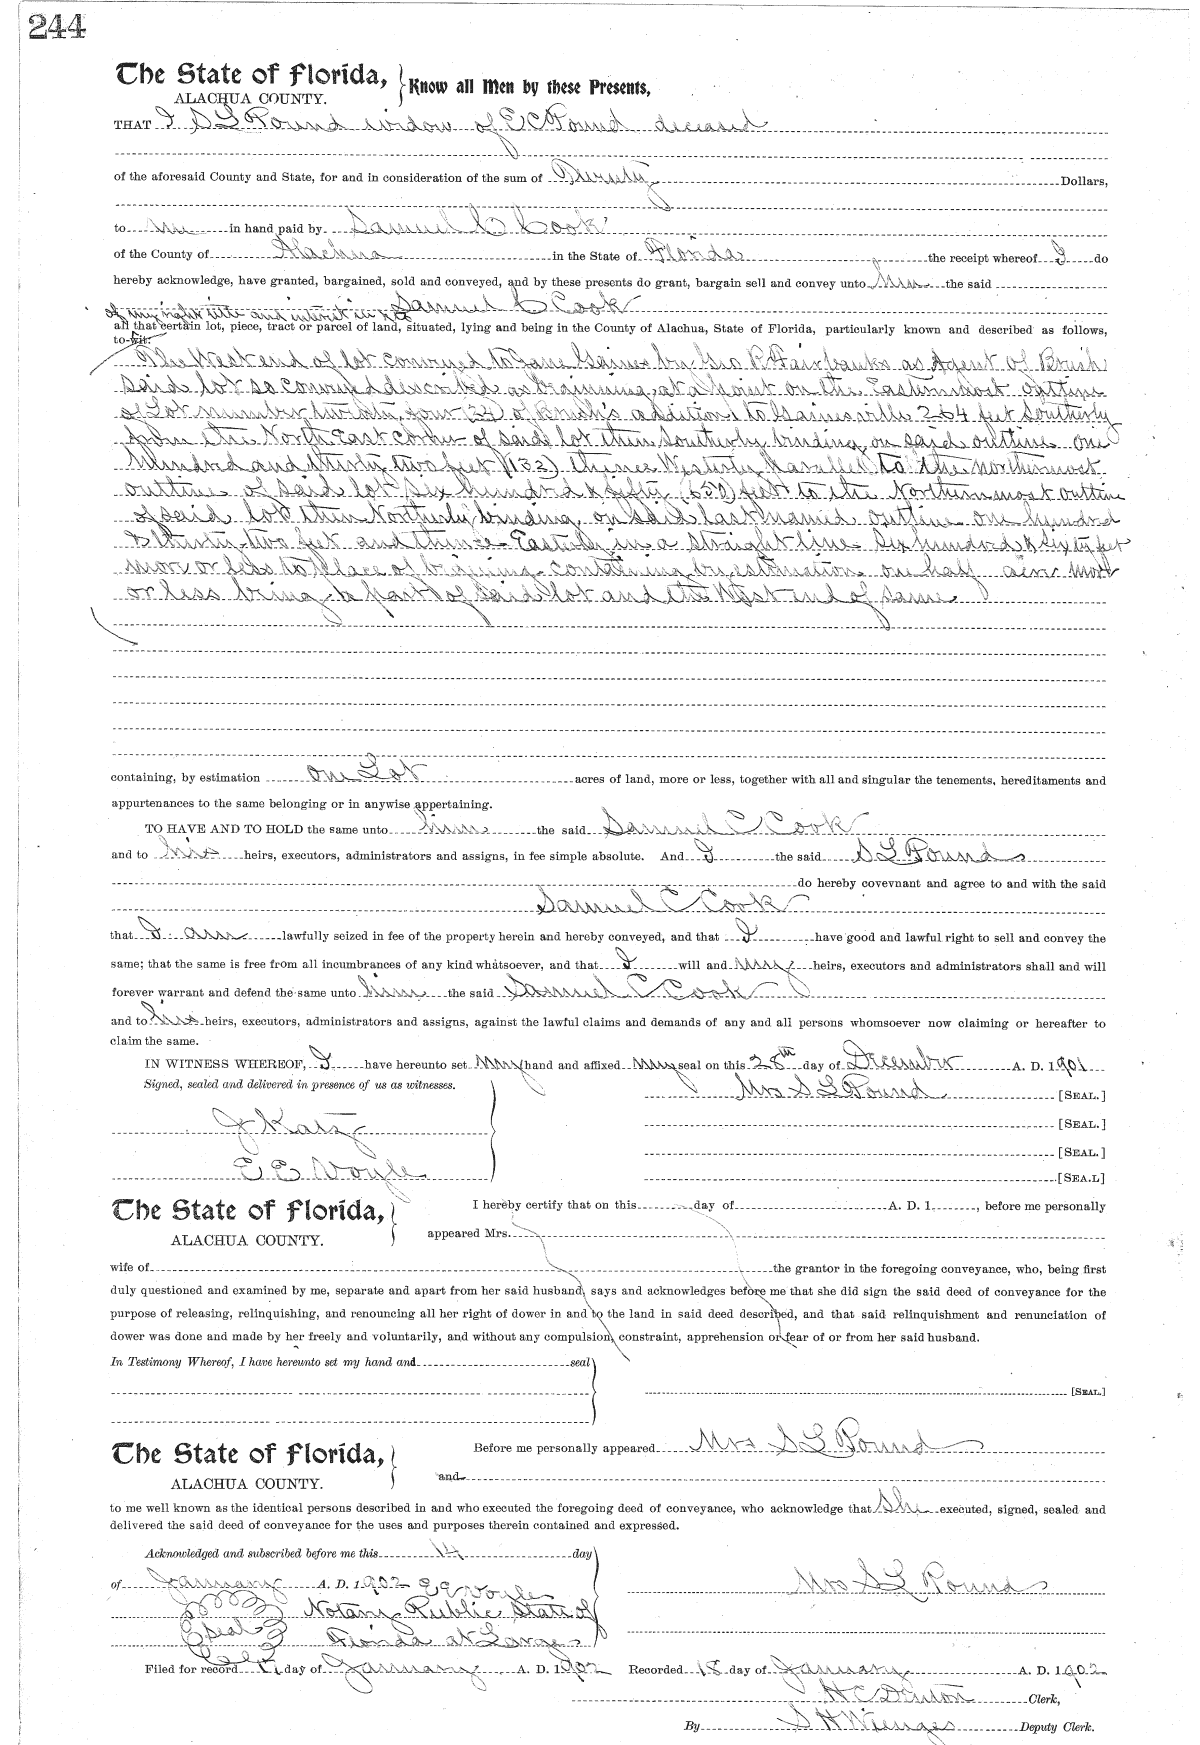 244
The State of Florida, Know all Men by these Presents,
ALACHUA COUNTY.
THAT I S L Pound widow of E C Pound deceased
of the aforesaid County and State, for and in consideration of the sum of Dollars,
to me in hand paid by Samuel C Cook
of the County of Alachua in the State of Florida the receipt whereof I do
hereby acknowledge, have granted, bargained, sold and conveyed, and by these presents do grant, bargain sell and convey unto him the said
Samuel C Cook
of my right title and interest in
all that certain lot, piece, tract or parcel of land, situated, lying and being in the County of Alachua, State of Florida, particularly known and described as follows,
to-wit:
The West end of lot conveyed to Jane Gaines by Geo R Fairbanks as Agent of Brush
said lot so conveyed described as begining at a point on the Easternmost outline
of Lot number four of Brush's addition to Gainesville 264 feet Southerly
from the North East corner of said lot then Southerly binding on said outline one
Hundred and thirty two feet (132) thence Westerly Parallel to the northernmost
outline of said lot Six hundred & fifty (650) feet to the Northernmost outline
of said lot then Northerly binding on said last named outline one hundred
& thirty two feet and thence Easterly in a straight line Six hundred & Sixty feet
more or less to Place of begining containing by estimation one half acre more
or less being a part of said lot and the West end of same
containing, by estimation one Lot acres of land, more or less, together with all and singular the tenements, hereditaments and
appurtenances to the same belonging or in anywise appertaining.
TO HAVE AND TO HOLD the same unto him the said Samuel C Cook
and to his heirs, executors, administrators and assigns, in fee simple absolute. And I the said S L Pound
do hereby covevnant and agree to and with the said
Samuel C Cook
that I am lawfully seized in fee of the property herein and hereby conveyed, and that I have good and lawful right to sell and convey the
same; that the same is free from all incumbrances of any kind whatsoever, and that I will and my heirs, executors and administrators shall and will
forever warrant and defend the same unto him the said Samuel C Cook
and to his heirs, executors, administrators and assigns, against the lawful claims and demands of any and all persons whomsoever now claiming or hereafter to
claim the same.
IN WITNESS WHEREOF, I have hereunto set my hand and affixed my seal on this 28th day of December A. D. 1901
Signed, sealed and delivered in presence of us as witnesses. Mrs S L Pound [SEAL.]
J Katz [SEAL.]
[SEAL.]
E E Voyle [SEA.L]
The State of Florida, I hereby certify that on this day of A. D. 1 , before me personally
ALACHUA COUNTY. appeared Mrs.
wife of the grantor in the foregoing conveyance, who, being first
duly questioned and examined by me, separate and apart from her said husband, says and acknowledges before me that she did sign the said deed of conveyance for the
purpose of releasing, relinquishing, and renouncing all her right of dower in and to the land in said deed described, and that said relinquishment and renunciation of
dower was done and made by her freely and voluntarily, and without any compulsion, constraint, apprehension or fear of or from her said husband.
In Testimony Whereof, I have hereunto set my hand and seal
[SEAL.]
The State of Florida, Before me personally appeared Mrs S L Pound
ALACHUA COUNTY. and
to me well known as the identical persons described in and who executed the foregoing deed of conveyance, who acknowledge that She executed, signed, sealed and
delivered the said deed of conveyance for the uses and purposes therein contained and expressed.
Acknowledged and subscribed before me this 14 day
of January A. D. 1902 E E Voyle Mrs S L Pound
Notary Public State of
Seal Florida at Large
Filed for record day of January A. D. 1902 Recorded 18 day of January A. D. 1902
H C Denton Clerk,
By S H Wienges Deputy Clerk.